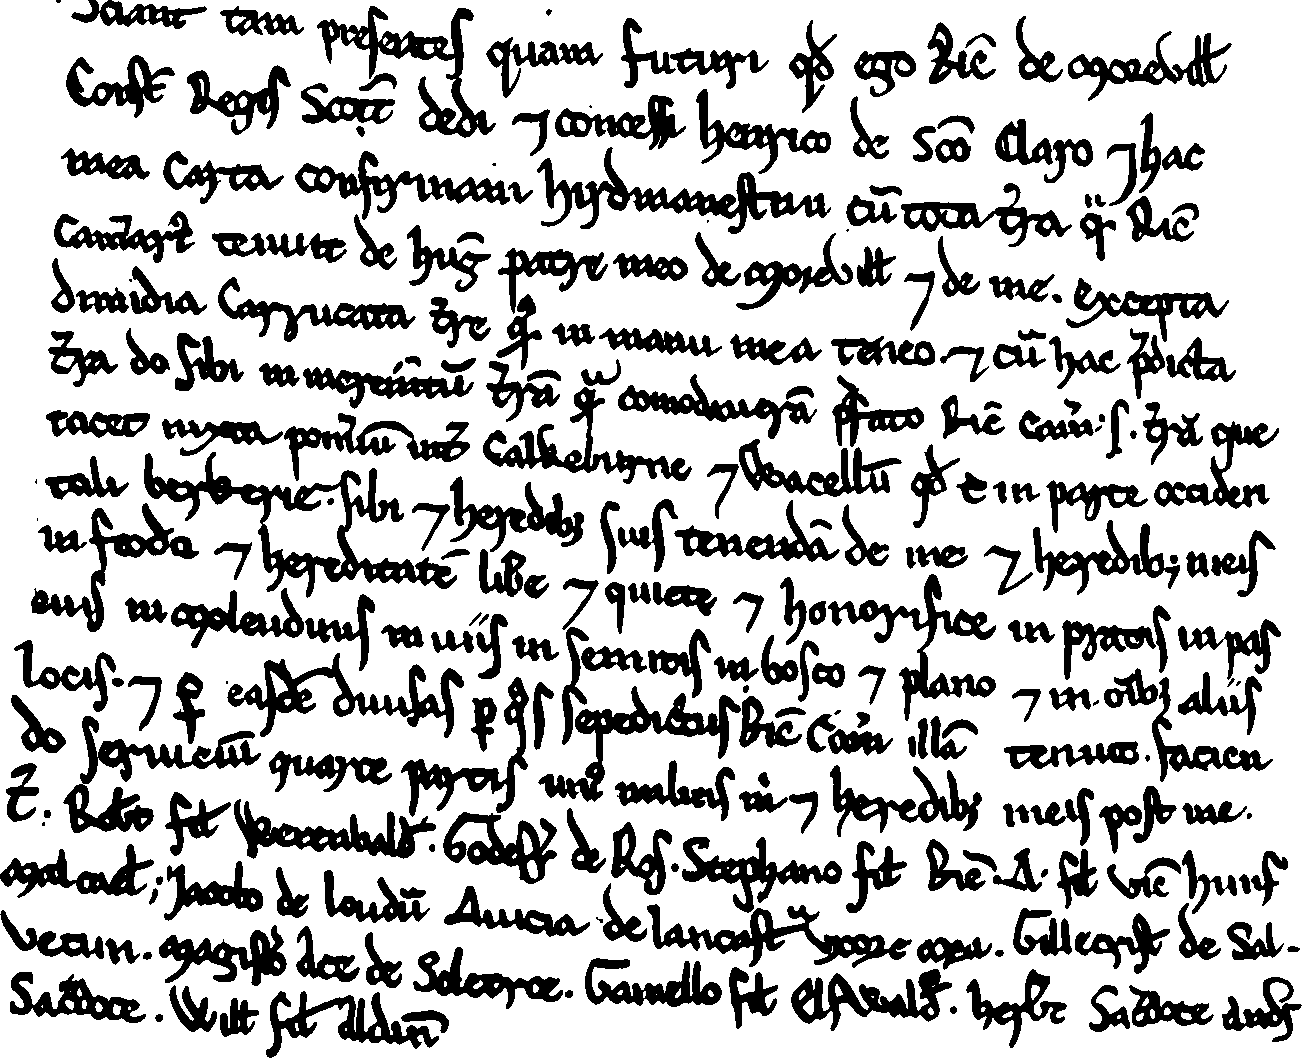 Sciant tam presentes quam futuri qđ ego Ric̄ de Moreuill
Const̄ Regis Scott̄ dedi ⁊ concessi henrico de Sc̄o Claro ⁊ hac
mea Carta confirmaui hirdmanestun cū tota t̄ra q̄ Ric̄
Cam̄ar̄ tenuit de huḡ patre meo de Moreuill ⁊ de me. excepta
dimidia Carrucata t̄re q̄ in manu mea teneo. ⁊ cū hac p̄dicta
t̄ra do sibi in incrēmtū t̄rā q̄ comodauerā p̄fato Ric̄ Cam̄. s. t̄rā que
iacet iuxta pom̄iū int̄ Calkeburne ⁊ Wacellū qđ ē in parte occiden
tali berkerie. sibi ⁊ heredibꝫ suis tenendā de me ⁊ heredib; meis
in feodo ⁊ hereditatē libe ⁊ quiete ⁊ honorifice in pratis in pas
cuis in Molendinis in uiis in semitis in bosco ⁊ plano ⁊ in oīibꝫ aliis
locis. ⁊ ꝑ easdē diuisas ꝑ q̄s sepedictus Ric̄ Cam̄ illā tenuit. facien
do seruiciū quarte partis uni⁹ militis m̄ ⁊ heredibꝫ meis post me.
T̄. Rob̄to fił Werenbald. Godefr̄ de Ros. Stephano fił Ric̄. A. fił Vic̄ huius
Malcael; Jacobo de loudū Auicia de lancast̄ Vxore mea. Gillecrist de Sal-
uetun. Magist̄ de Soletre. Gamello fił Elfwald. herb̄t Sac̄dote
Sac̄dote. Will fił aldun̄